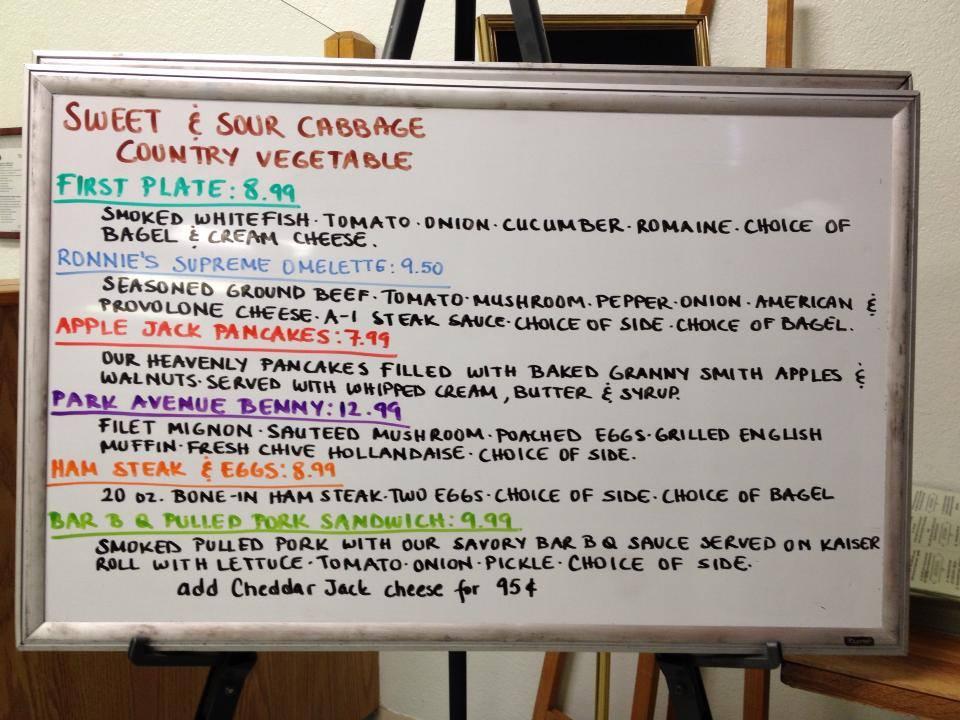 SWEET & SOUR CABBAGE
COUNTRY VEGETABLE
FIRST PLATE: 8.99
SMOKED WHITEFISH · TOMATO · ONION · CUCUMBER · ROMAINE · CHOICE OF
BAGEL & CREAM CHEESE.
RONNIE'S SUPREME OMELETTE: 9.50
SEASONED GROUND BEEF · TOMATO · MUSHROOM · PEPPER · ONION · AMERICAN &
PROVOLONE CHEESE · A-1 STEAK SAUCE · CHOICE OF SIDE · CHOICE OF BAGEL.
APPLE JACK PANCAKES: 7.99
OUR HEAVENLY PANCAKES FILLED WITH BAKED GRANNY SMITH APPLES &
WALNUTS · SERVED WITH WHIPPED CREAM, BUTTER & SYRUP.
PARK AVENUE BENNY: 12.99
FILET MIGNON · SAUTEED MUSHROOM · POACHED EGGS · GRILLED ENGLISH
MUFFIN · FRESH CHIVE HOLLANDAISE · CHOICE OF SIDE.
HAM STEAK & EGGS: 8.99
20 oz. BONE-IN HAM STEAK · TWO EGGS · CHOICE OF SIDE · CHOICE OF BAGEL
BAR B Q PULLED PORK SANDWICH: 9.99
SMOKED PULLED PORK WITH OUR SAVORY BAR B Q SAUCE SERVED ON KAISER
ROLL WITH LETTUCE · TOMATO · ONION · PICKLE · CHOICE OF SIDE.
add Cheddar Jack cheese for 95¢